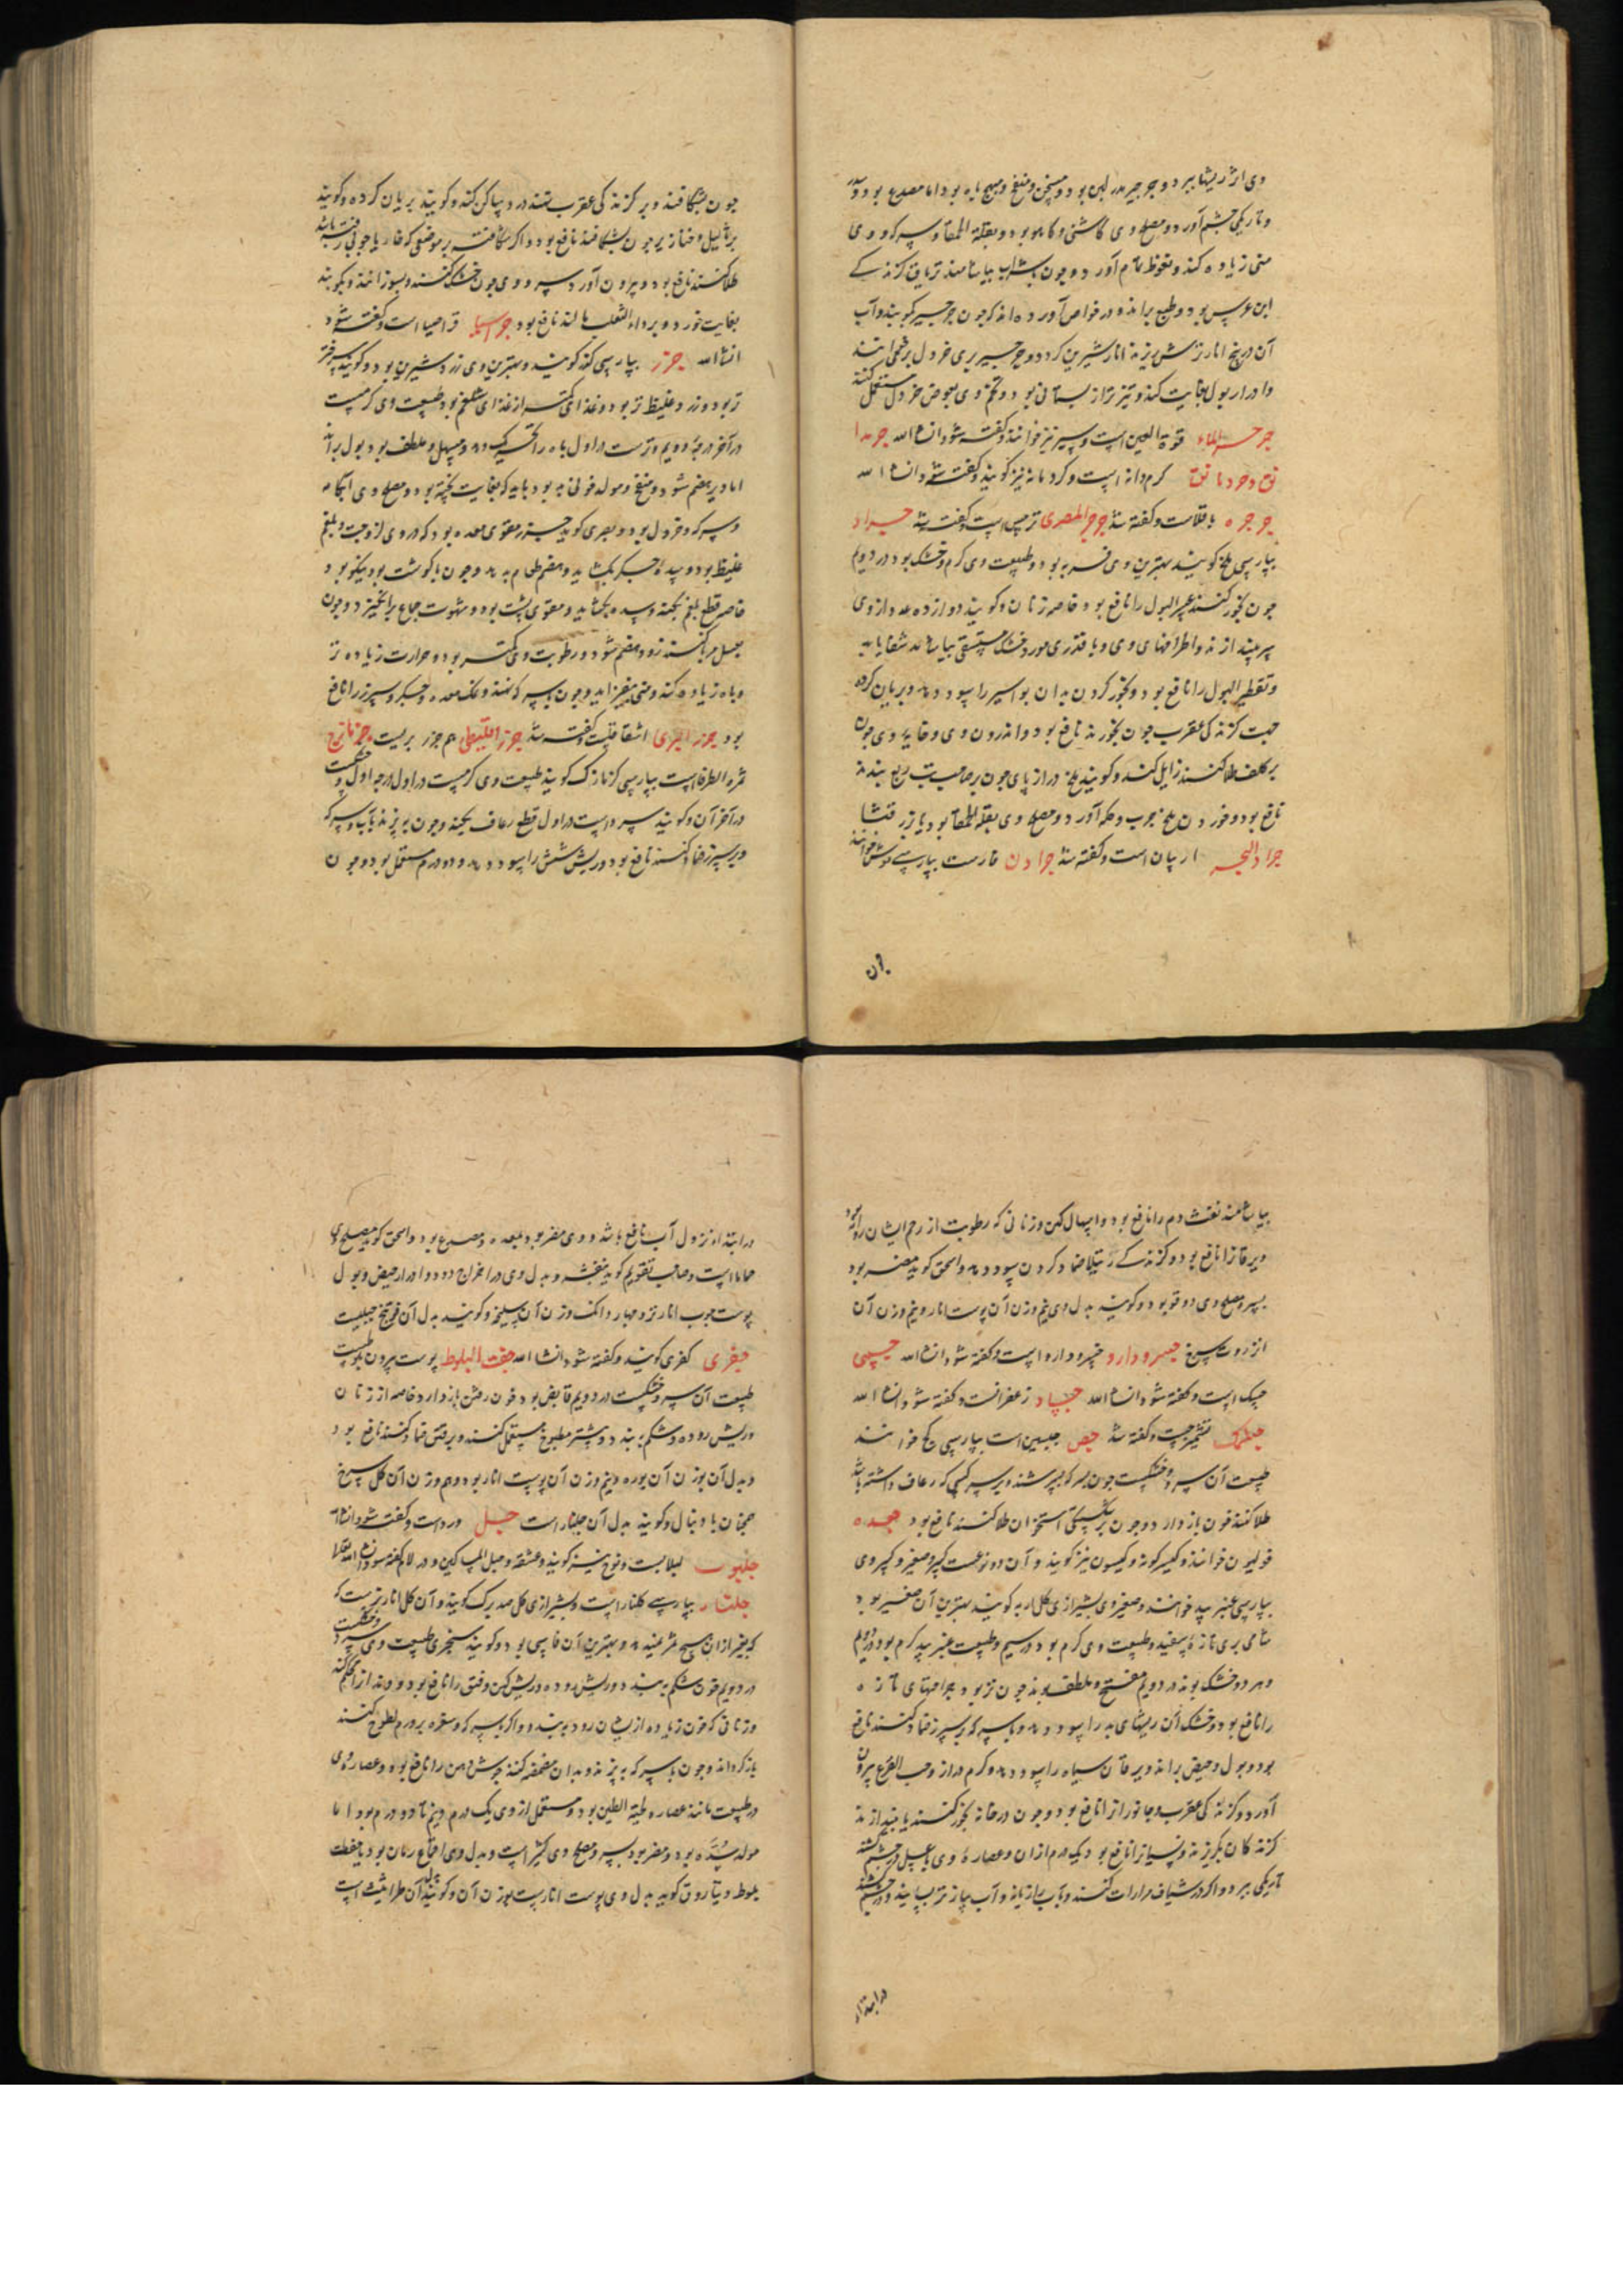 وی اثر ریشها ببرد و جرجیر مدر لبن بود و مسخن و منفخ و مهیج باه بود اما مصدع بود و
و تاریکی چشم آورد و مصلح وی کاسنی و کاهو بود و بقلة الحمقا و سرکه و وی
منی زیاده کند و نعوظ تمام آورد و چون با شراب بیاشامند تریاق کزندکی
ابن عرس بود و طبع براند و در خواص آورده اند که چون جرجیر بکوبند و آب
آن در بیخ انار ترش ریزند انار شیرین کردد و جرجیر بری خردل بری خوانند
و ادرار بول بغایت کند و تیزتر از بستانی بود و تخم وی بعوض خردل مستعمل کنند
جرجیر الماء قرة العین است و سیر نیز خوانند و کفته شود انشاء الله
کرم دانه است و کرد مانه نیز کویند و کفته شود انشاء الله
جرجره باقلاست و کفته شد جرجر المصری ترمس است و کفته شد جراد
بپارسی ملخ کویند بهترین وی فربه بود و طبیعت وی کرم و خشک بود در دویم
چون بخور کنند عسر البول را نافع بود خاصه زنان و کویند دوازده عدد از وی
سر بیندازند و اطرافهای وی و با قدری مورد خشک مستسقی بیاشامد شفا یابد
و تقطیر البول را نافع بود و بخور کردن بدان بواسیر را سود دهد و بریان کرده
جهت کزندکی عقرب چون بخورند نافع بود و اندرون وی و خایه وی چون
بر کلف طلا کنند زایل کند و کویند ملخ دراز پای چون بر صاحب تب ربع بندند
نافع بود و خوردن ملخ جرب و حکه آورد و مصلح وی بقلة الحمقا بود یا بزر قثا
جراد البحر اربیان است و کفته شد جرادن فارست بپارسی موش خوانند
چون
چون بشکافند و بر کزندکی عقرب نهند درد ساکن کند و کویند بریان کرده و کویند
بر ثالیل و خنازیر چون بشکافند نافع بود و اکر شکافته بر موضعی که خار یا چوبی رفته باشد
طلا کنند نافع بود و بیرون آورد سر و وی چون خشک کنند و بسوزانند و بکوبند
بغایت خورد و بر داء الثعلب مالند نافع بود جراسیا قراصیا است و کفته شود
انشاء الله جزر بپارسی کزر کویند و بهترین وی زرد شیرین بود و کویند سرختر
تر بود و زرد غلیظ تر بود و غذای وی کمتر از غذای شلغم بود طبیعت وی کرمست
در آخر درجه دویم و ترست در اول باه را تحریک دهد و مسهل و ملطف بود بول براند
اما دیر هضم شود و منفخ و مولد خونی بد بود باید که بغایت پخته بود و مصلح وی آبکامه
و سرکه و خردل بود و بصری کوید جزر مقوی معده بود که در وی لزوجت و بلغم
غلیظ بود و سده جکر بکشاید و هضم طعام بدهد و چون با کوشت بود نیکو بود
خاصه قطع بلغم بکند و سده بکشاید و مقوی پشت بود و شهوت جماع برانکیزد و چون
بعسل مربا کنند زود هضم شود و رطوبت وی کمتر بود و حرارت زیاده تر
و باه زیاده کند و منی بیفزاید و چون با سرکه نهند و نمک معده و جکر و سپرز را نافع
بود جزر البری اشقاقلست و کفته شد جزر اقلیطی هم جزر بریست جزمازج
ثمرة الطرفا است بپارسی کزمازک کویند طبیعت وی کرمست در اول درجه اول و خشکست
در آخر آن و کویند سرد است در اول قطع رعاف بکند و چون بپزند با آب و سرکه
و بر سپرز ضماد کنند نافع بود و ریش شش را سود دهد و دو درم مستعمل بود و چون
بیاشامند نفث دم را نافع بود و اسهال کهن و زنانی که رطوبت از رحم ایشان روانه بود
و یرقان را نافع بود و کزندکی رتیلا ضماد کردن سود دهد و اسحق کوید مضر بود
بسر و مصلح وی دوقو بود و کویند بدل وی نیم وزن آن پوست انار و نیم وزن آن
انزروت سرخ جسرودارو خسرودارو است و کفته شود انشاء الله
جسک است و کفته شود انشاء الله جساد زعفرانست و کفته شود انشاء الله
تشمیزجست و کفته شد جص جبسین است بپارسی کچ خوانند
طبیعت آن سرد و خشکست چون بسرکه بسرشند و بر سر کسی که رعاف داشته باشد
طلا کنند خون باز دارد و چون بر شکستکی استخوان طلا کنند نافع بود جعده
فولیون خوانند و آن دو نوعست کبیر و صغیر و کبیر وی
بپارسی عنبربید خوانند و صغیر وی بشیرازی کل اربه کویند بهترین آن صغیر بود
شامی بری تازه سفید و طبیعت وی کرم بود در سیم و طبیعت عنبربید کرم بود در دویم
و هر دو خشک بوند در دویم مفتح و ملطف بوند چون تر بود جراحتهای تازه
را نافع بود و خشک آن ریشهای بد را سود دهد و با سرکه بر سپرز ضماد کنند نافع
بود و بول و حیض براند و یرقان سیاه را سود دهد و کرم دراز و حب القرع بیرون
آورد و کزندکی عقرب و جانوران را نافع بود و چون در خانه بخور کنند یا بیندازند
کزندکان بکریزند و نسیان را نافع بود و یک درم از آن و عصاره وی با عسل در چشم کشند
تاریکی ببرد و اکر در شیاف مرارات کنند و بآب رازیانه و آب پیاز تر بسایند و در چشم کشند
در ابتداء
در ابتداء نزول آب نافع باشد و وی مضر بود بمعده و مصدع بود و اسحق کوید مصلح وی
حماما است و صاحب تقویم کوید بنفشه و بدل وی در اخراج دود و ادرار حیض و بول
پوست چوب انار تر و چهار دانک وزن آن سلیخه و کویند بدل آن فوتنج جبلیست
جفری کفری کویند و کفته شود انشاء الله جفت البلوط پوست بیرون بلوطست
طبیعت آن سرد و خشکست در دویم قابض بود خون رفتن باز دارد خاصه از زنان
و ریش روده و شکم ببندد و بیشتر مطبوخ مستعمل کنند و بر فتق ضماد کنند نافع بود
و بدل آن بوزن آن بوره و نیم وزن آن پوست انار بود و هم وزن آن کل سرخ
همچنان با و نبال و کویند بدل آن جلنار است جل ورد است و کفته شود انشاء الله
جلبوب لبلابست و نوخ نیز کویند و عشقه و حبل المساکین و در لام کفته شود انشاء الله تعالی
جلنار بپارسی کلنار است و بشیرازی کل صدبرک کویند و آن کل انار تریست که
که بغیر از آن هیچ ثمر نبندد و بهترین آن فارسی بود و کویند مصری طبیعت وی سرد و خشکست
در دویم خون شکم ببندد و ریش روده و ریش کهن و فتق را نافع بود و دندان را محکم کند
و زنانی که خون زیاده از ایشان رود ببندد و اکر با سرکه و سفره بر ورم لطوخ کنند
باز کرداند و چون با سرکه بپزند و بدان مضمضه کنند جوشش دهن را نافع بود و عصاره وی
در طبیعت مانند عصاره لحیة التیس بود و مستعمل از وی یک درم و نیم تا دو درم بود اما
مولد سده بود و مضر بود بسر و مصلح وی کثیرا است و بدل وی اقماع رمان بود یا جفت
بلوط و یا اروق کوید بدل وی پوست انارست بوزن آن و کویند بدل آن طراثیث است